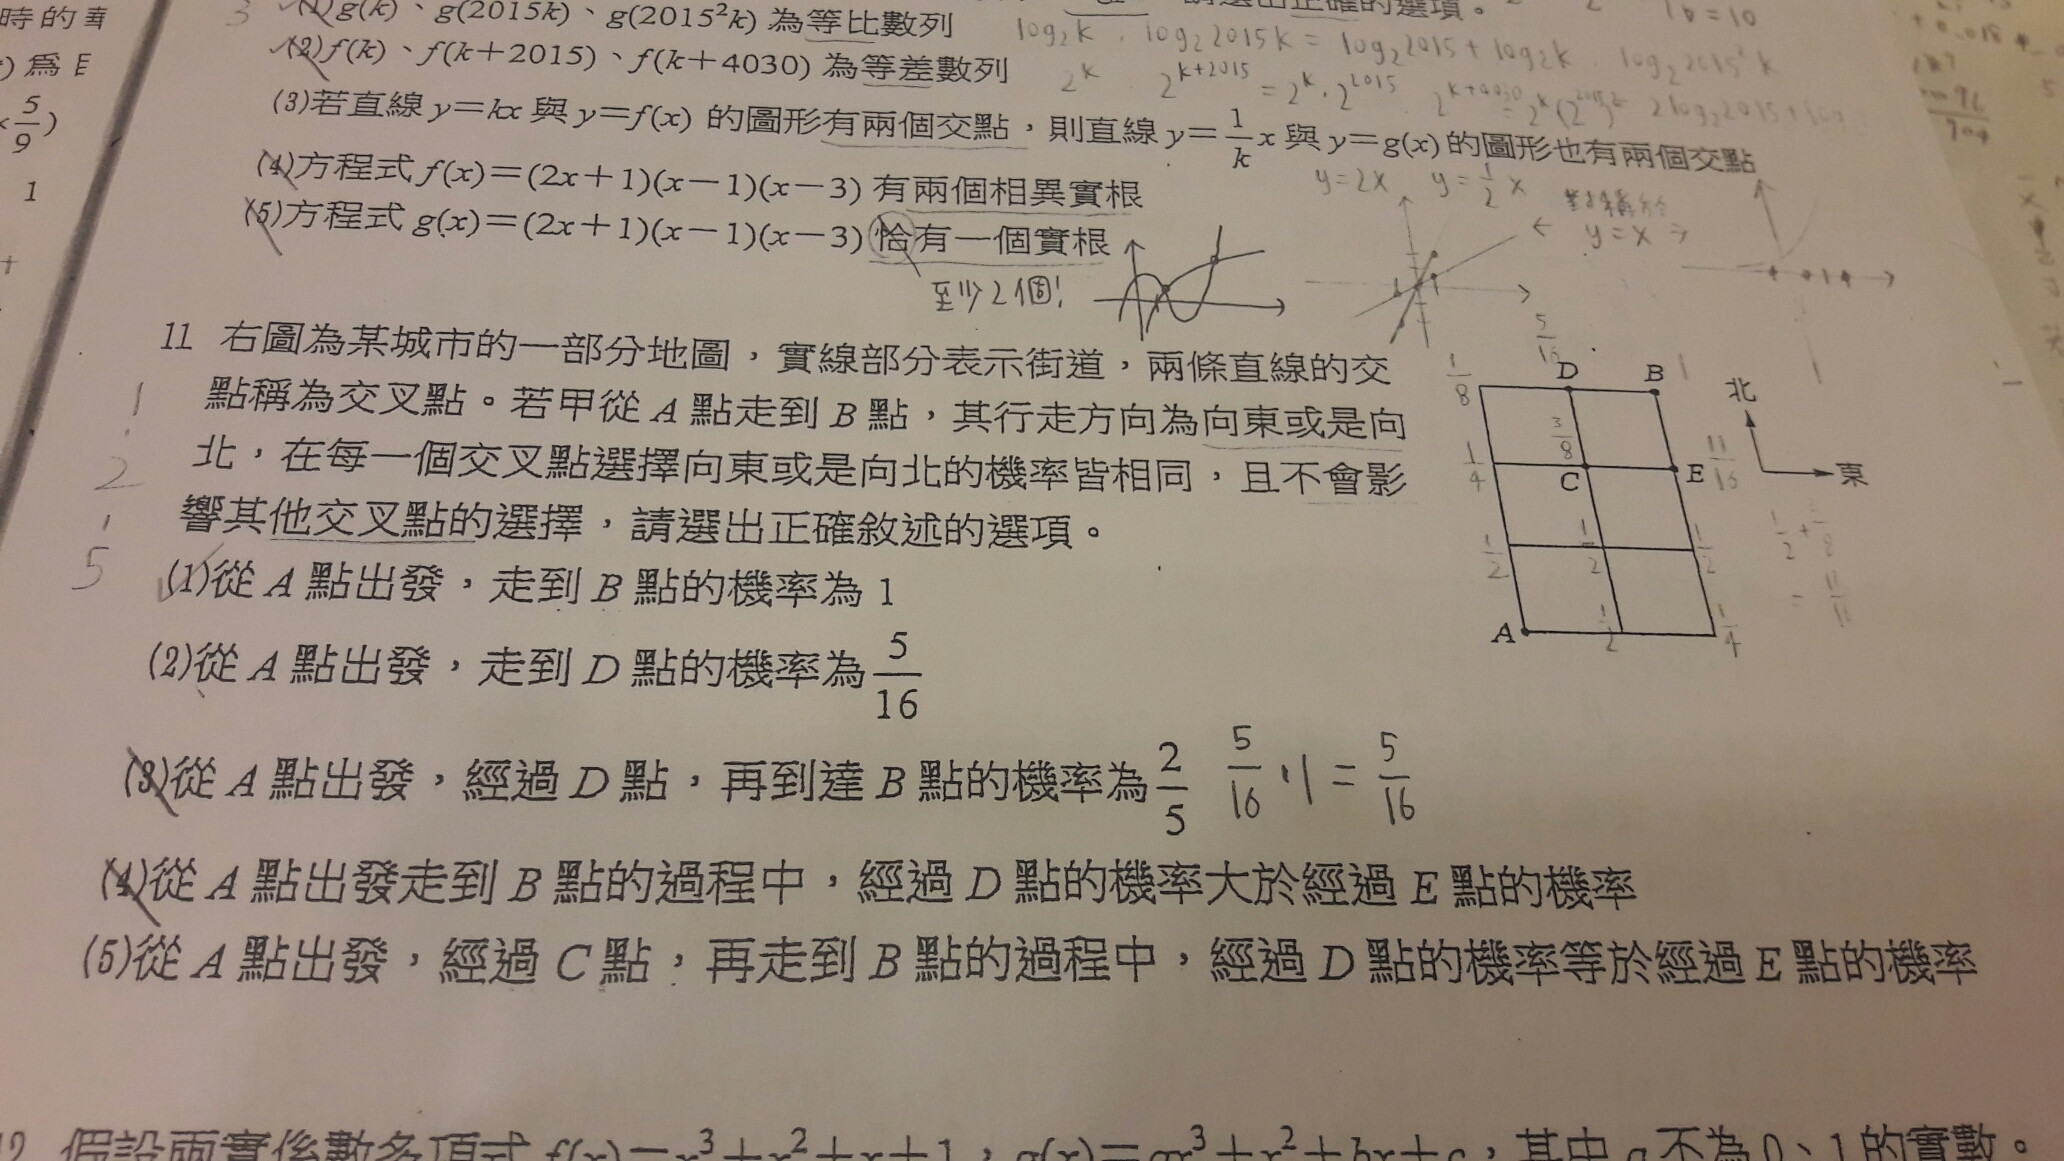 時的
3 (1) g(k)、g(2015k)、g(2015²k) 為等比數列
請選出正確的選項。
log₂k , log₂2015k = log₂2015 + log₂k , log₂2015²k
(2) f(k)、f(k+2015)、f(k+4030) 為等差數列
2^k 2^(k+2015) = 2^k · 2^2015
) 為
5/9)
1
(3)若直線 y=kx 與 y=f(x) 的圖形有兩個交點，則直線 y=1/k x 與 y=g(x) 的圖形也有兩個交點
(4)方程式 f(x)=(2x+1)(x-1)(x-3) 有兩個相異實根
y=2x y=1/2 x
對稱於
← y=x →
(5)方程式 g(x)=(2x+1)(x-1)(x-3) 恰有一個實根
至少2個!
11 右圖為某城市的一部分地圖，實線部分表示街道，兩條直線的交
點稱為交叉點。若甲從 A 點走到 B 點，其行走方向為向東或是向
北，在每一個交叉點選擇向東或是向北的機率皆相同，且不會影
響其他交叉點的選擇，請選出正確敘述的選項。
1
2
5
5/16
1/8 D B 1
北
3/8
1/4 C E 11/16 東
1/2 1/2 1/2
1/2 + 3/8
= 11/16
A 1/2 1/4
(1)從 A 點出發，走到 B 點的機率為 1
(2)從 A 點出發，走到 D 點的機率為 5/16
(3)從 A 點出發，經過 D 點，再到達 B 點的機率為 2/5 5/16 · 1 = 5/16
(4)從 A 點出發走到 B 點的過程中，經過 D 點的機率大於經過 E 點的機率
(5)從 A 點出發，經過 C 點，再走到 B 點的過程中，經過 D 點的機率等於經過 E 點的機率
12 假設兩實係數多項式 f(x)=x³+x²+x+1，g(x)=ax³+x²+bx+c，其中 a 不為 0、1 的實數。